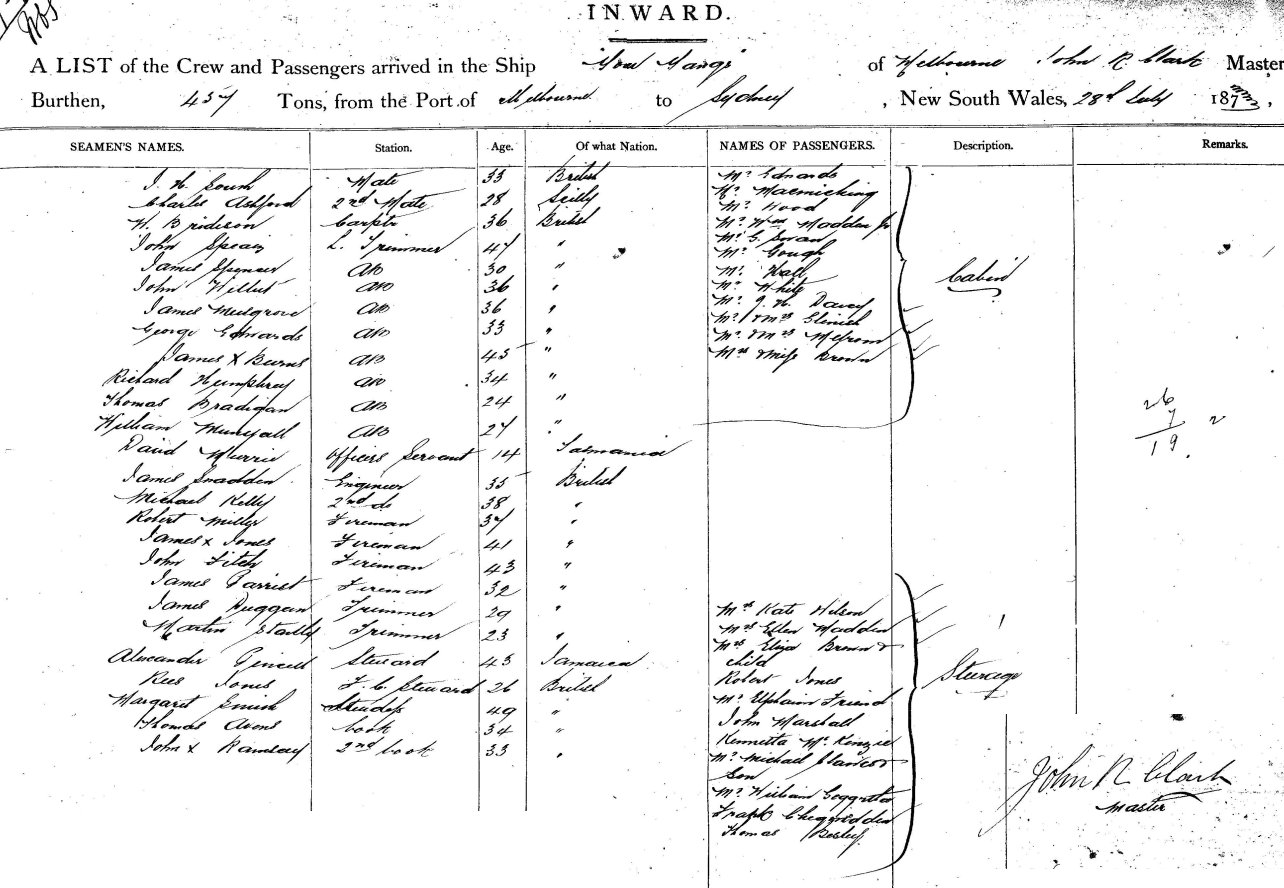 INWARD.
A LIST of the Crew and Passengers arrived in the Ship "You Yangs" of Melbourne John R Clark Master
Burthen, 457 Tons, from the Port of Melbourne to Sydney, New South Wales, 28th July 187
SEAMEN'S NAMES. Station. Age. Of what Nation. NAMES OF PASSENGERS. Description. Remarks.
Mate 33 British Mr Edwards
Charles Ashford 2nd Mate 28 Scilly Mr Macmicking
W. Brideson Carptr 36 British Mr Wood
John L. Trimmer 47 " Mr Wm Madden Jr
Mr G. Swan
James Spencer AB 30 " Mr Gough
John AB 36 " Mr Hall
Mr White
James Musgrove AB 36 " Mr J. H. Davey
George Edwards AB 33 " Mr & Mrs
James X Burns AB 45 " Mr & Mrs
Mrs & Miss Brown
Cabin
Richard Humphrey AB 34 "
Thomas Bradigan AB 24 "
William AB 27 "
David Officers Servant 14 Tasmania
26
7
19 2
James Engineer 35 British
Michael Kelly 2nd do 38 "
Robert Miller Fireman 37 "
James x Jones Fireman 41 "
John Fitch Fireman 43 "
James Fireman 32 "
James Duggan Trimmer 29 " Mrs Kate Wilson
Martin Trimmer 23 " Mrs Ellen Madden
Mrs Eliza Brown &
Alexander Steward 43 Jamaica child
Rees Jones F. C. Steward 26 British Robert Jones
Margaret Stewdess 49 " Mr Friend
Thomas Avons Cook 34 " John Marshall
John x Ramsay 2nd Cook 33 " Mc Kenzie
Steerage
Mr Michael &
Son
Mr William
Frank
Thomas Besley
John R Clark
Master